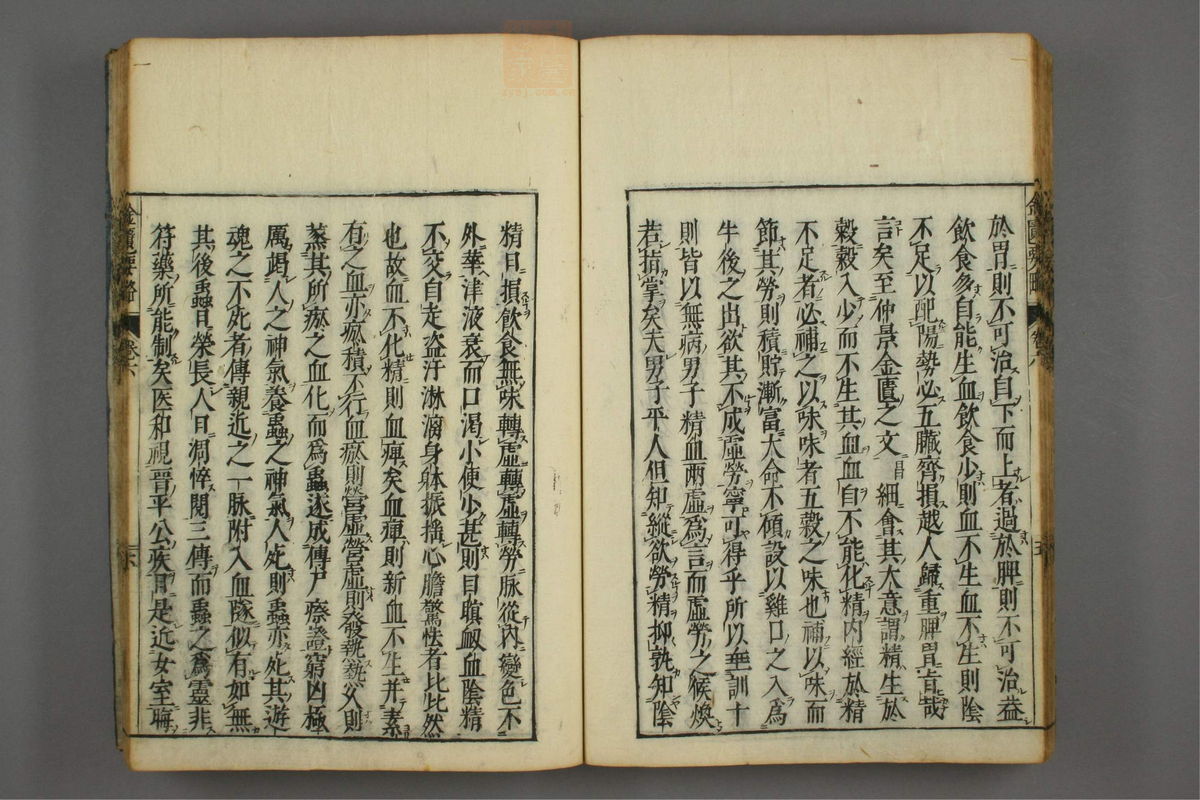 於胃則不可治自下而上者過於脾則不可治益
飲食多自能生血飲食少則血不生血不生則陰
不足以配陽勢必五臟齊損越人歸重脾胃旨哉
言矣至仲景金匱之文昌細會其大意謂精生於
穀穀入少而不生其血血自不能化精內經於精
不足者必補之以味味者五穀之味也補以味而
節其勞則積貯漸富大命不傾設以雞口之入為
牛後之出欲其不成虛勞寧可得乎所以垂訓十
則皆以無病男子精血兩虛為言而虛勞之候煥
若指掌矣夫男子平人但知縱欲勞精抑孰知陰
精日損飲食無味轉虛轉虛轉勞脈從內變色不
外華津液衰而口渴小便少甚則目瞑衄血陰精
不交自走盜汗淋漓身躰振搖心膽驚怯者比比然
也故血不化精則血痺矣血痺則新血不生并素
有之血亦瘀積不行血瘀則營虛營虛則發熱熱久則
蒸其所瘀之血化而為蟲遂成傳尸瘵證窮凶極
厲竭人之神氣養蟲之神氣人死則蟲亦死其遊
魂之不死者傳親近之一脉附入血隧似有如無
其後蟲日榮長人日凋悴閱三傳而蟲之為靈非
符藥所能制矣医和視晉平公疾曰是近女室晦
金匱要略
卷六